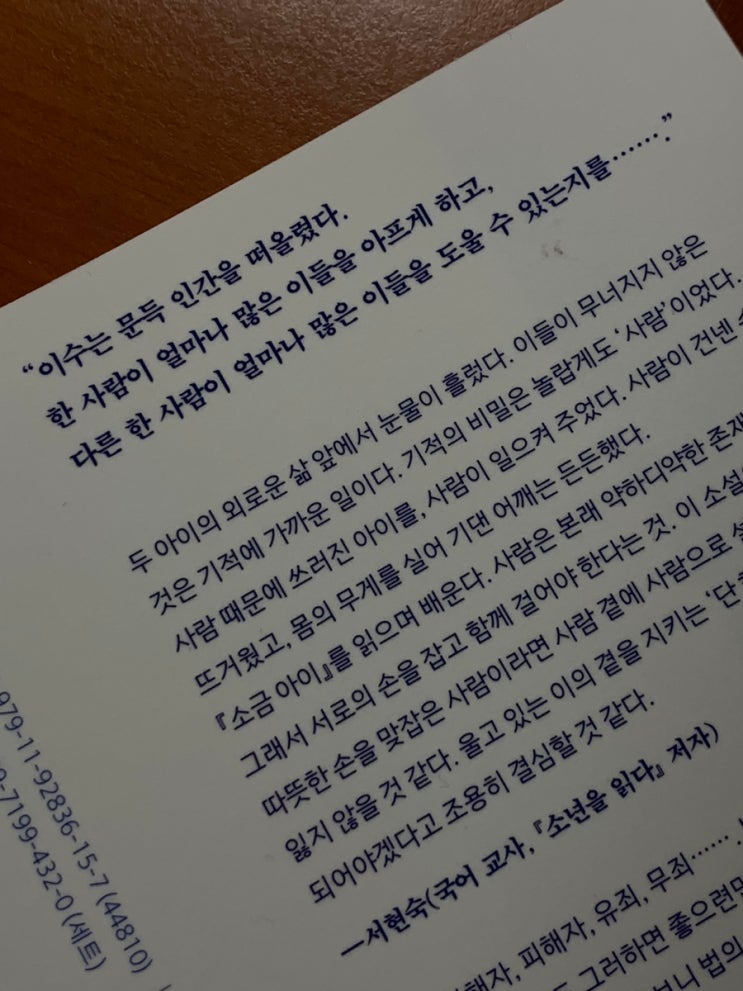 “이수는 문득 인간을 떠올렸다.
한 사람이 얼마나 많은 이들을 아프게 하고,
다른 한 사람이 얼마나 많은 이들을 도울 수 있는지를…….”
두 아이의 외로운 삶 앞에서 눈물이 흘렀다. 이들이 무너지지 않은
것은 기적에 가까운 일이다. 기적의 비밀은 놀랍게도 ‘사람’이었다.
사람 때문에 쓰러진 아이를, 사람이 일으켜 주었다. 사람이 건넨
뜨거웠고, 몸의 무게를 실어 기댄 어깨는 든든했다.
『소금 아이』를 읽으며 배운다. 사람은 본래 약하디약한 존재
그래서 서로의 손을 잡고 함께 걸어야 한다는 것. 이 소설
따뜻한 손을 맞잡은 사람이라면 사람 곁에 사람으로
잃지 않을 것 같다. 울고 있는 이의 곁을 지키는 ‘단
되어야겠다고 조용히 결심할 것 같다.
—서현숙(국어 교사, 『소년을 읽다』 저자)
해자, 피해자, 유죄, 무죄……
그러하면 좋으련만
보니 법의
979-11-92836-15-7 (44810)
7199-432-0 (세트)